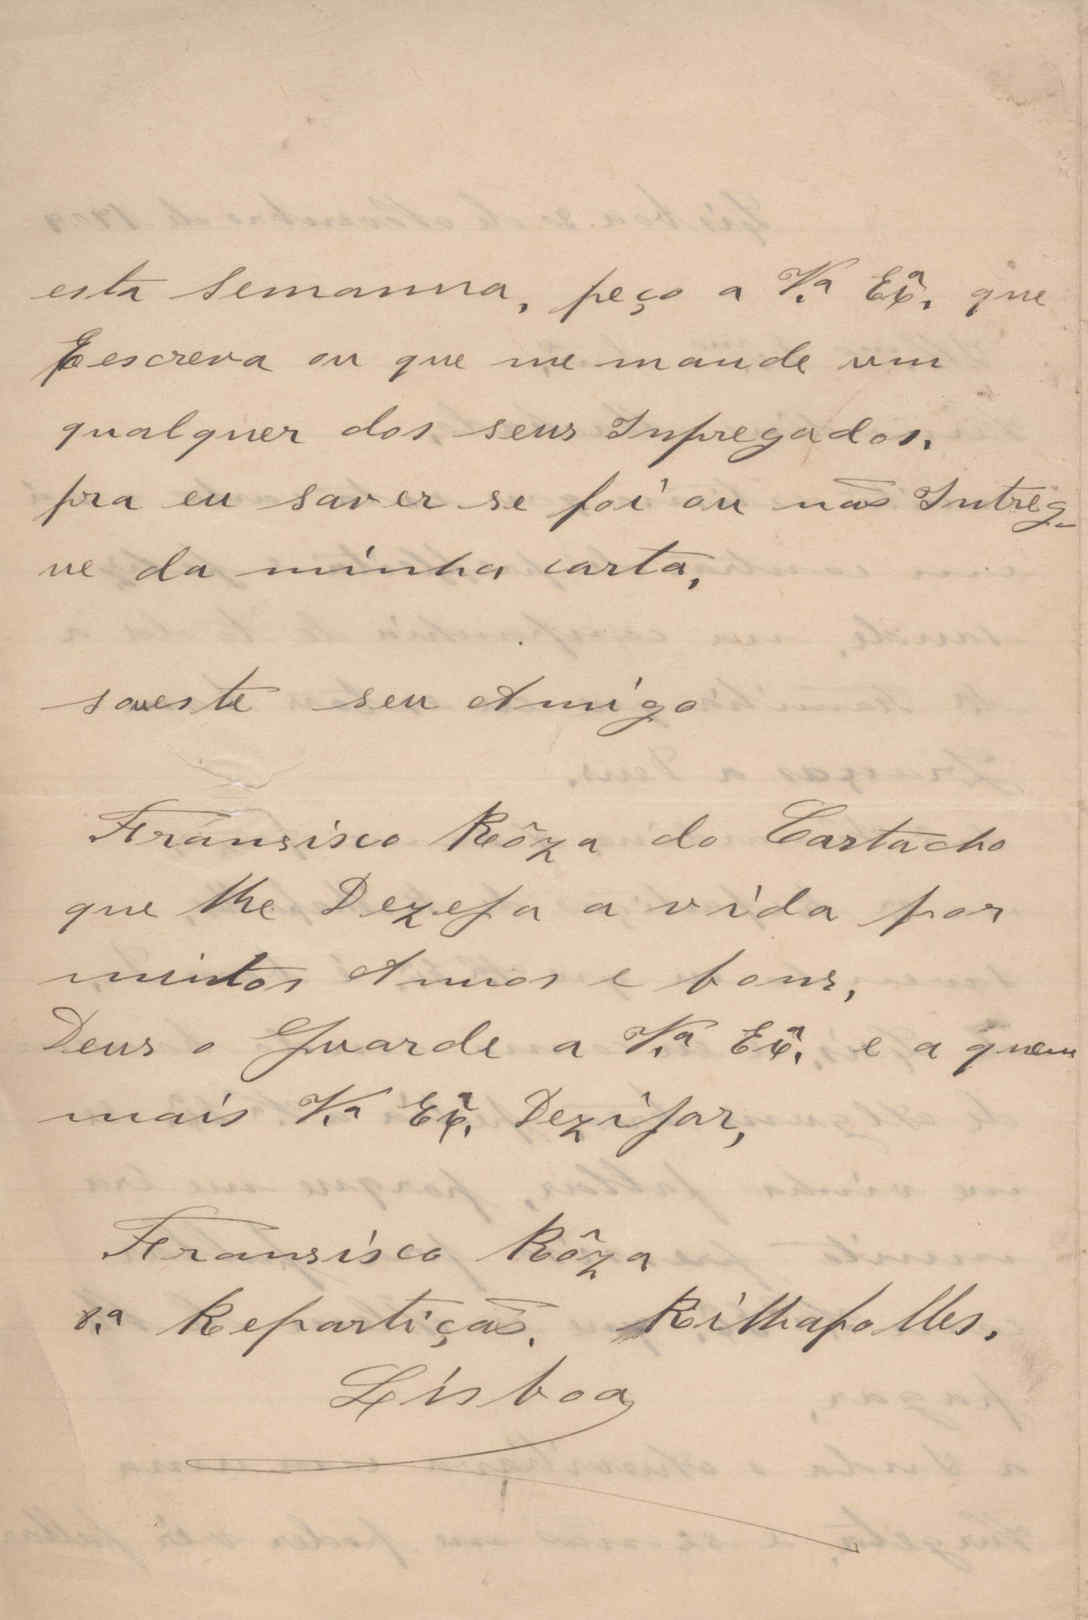 esta semanna, peço a V.ª Exª. que
Eescreva ou que me mande um
qualquer dos seus Inpregados.
pra eu saver se foi ou não Intreg-
ue da minha carta,
soueste seu Amigo
Fransisco Rôza do Cartacho
que lhe Dezeja a vida por
muitos Annos e bons,
Deus o Guarde a V.ª Exª. e a quem
mais V.ª Exª. Dezijar,
Fransisco Rôza
8.ª Repartição. Rilhafolles.
Lisboa